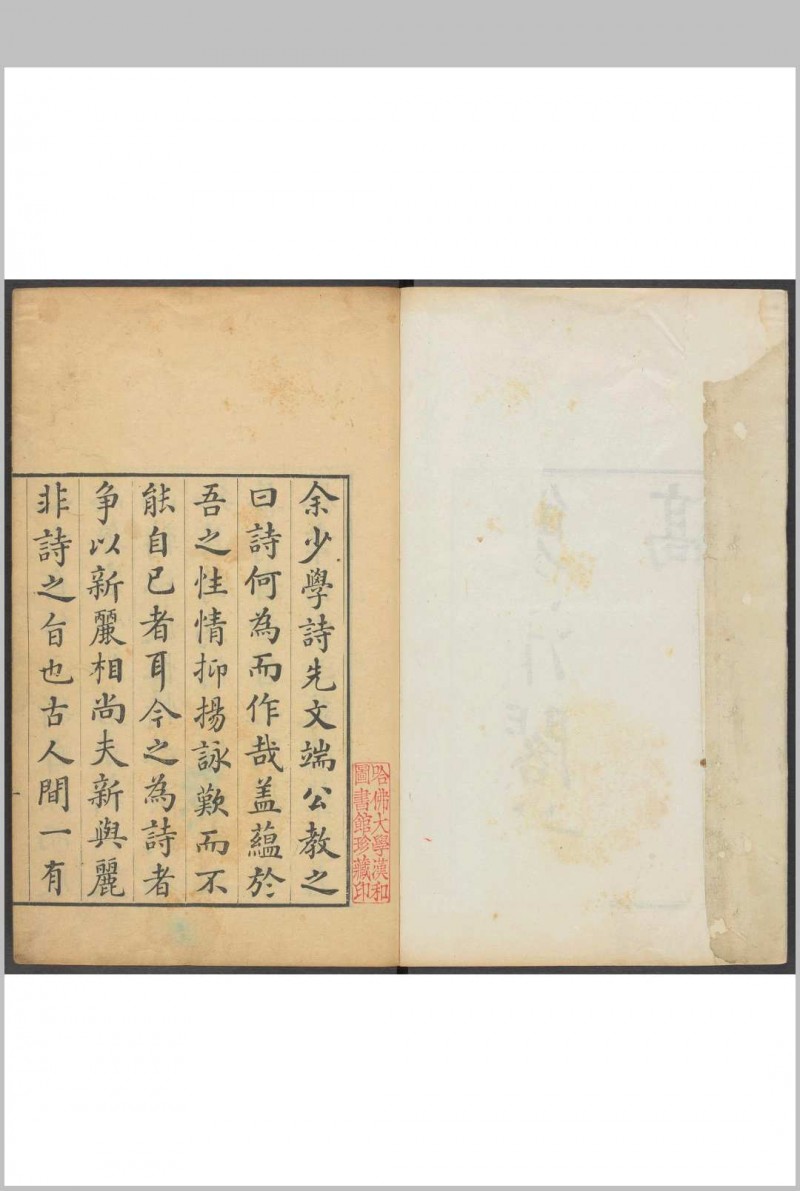 余少學詩先文端公教之
曰詩何為而作哉盖蘊於
吾之性情抑揚詠歎而不
能自已者耳今之為詩者
争以新麗相尚夫新與麗
非詩之旨也古人間一有
哈佛大學漢和
圖書館珍藏印